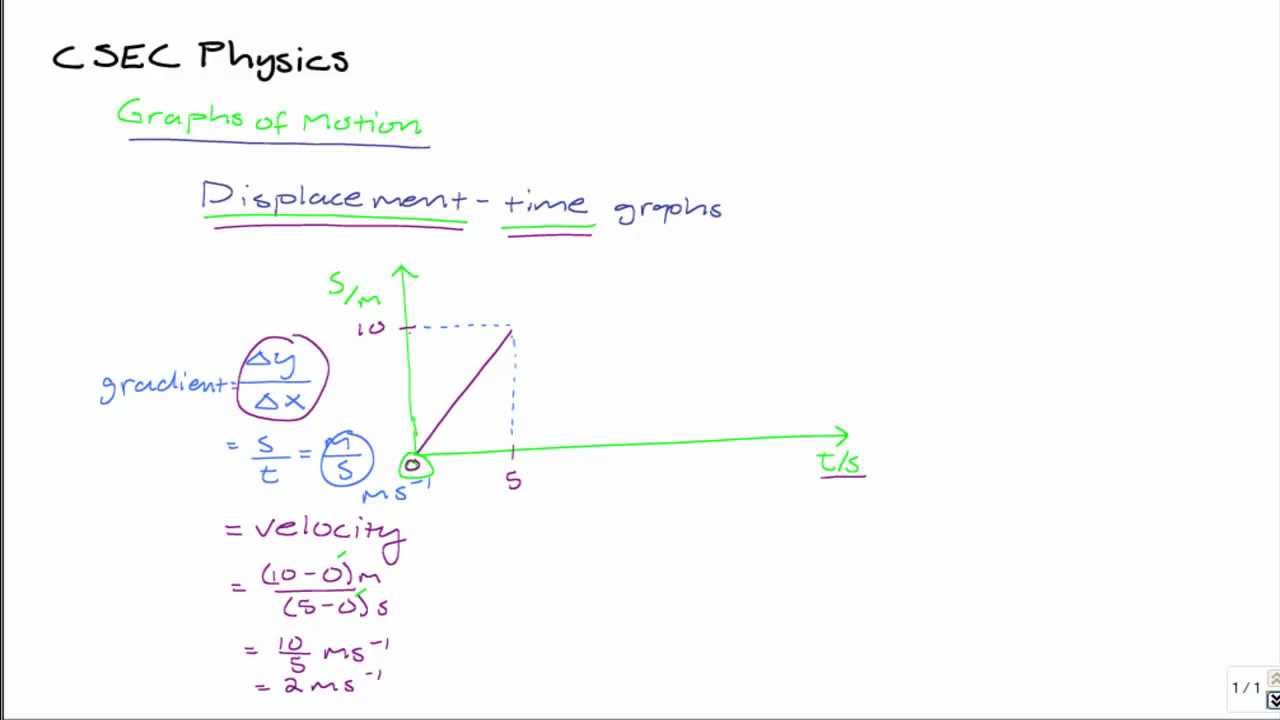 CSEC Physics
Graphs of Motion
Displacement - time graphs
S/m
10
gradient = Δy/Δx
= s/t = m/s
0
5
t/s
ms⁻¹
= velocity
= (10 - 0)m/(5 - 0)s
= 10/5 ms⁻¹
= 2ms⁻¹
1 / 1